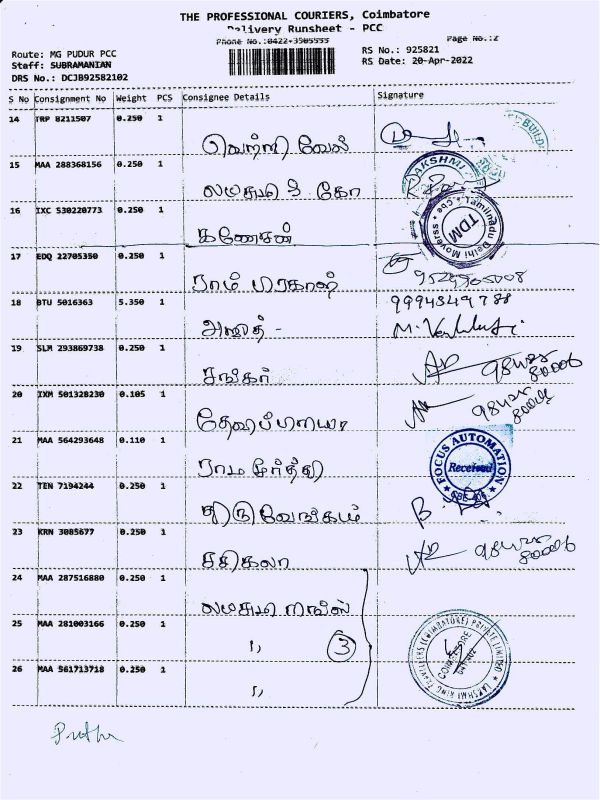 THE PROFESSIONAL COURIERS, Coimbatore
Delivery Runsheet - PCC
Phone No.:0422-3505555
Page No.:2
Route: MG PUDUR PCC
Staff: SUBRAMANIAN
DRS No.: DCJB92582102
RS No.: 925821
RS Date: 20-Apr-2022
S No Consignment No Weight PCS Consignee Details Signature
14 TRP 8211507 0.250 1
வெற்றி வேல்
15 MAA 288368156 0.250 1
LAKSHMI
16 IXC 530220773 0.250 1
கணேசன்
Tamilnadu Delhi Moverss * Cbe *
TDM
17 EDQ 22705350 0.250 1
ராம் பிரகாஷ்
18 BTU 5016363 5.350 1
9994349788
19 SLM 293869738 0.250 1
சங்கர்
20 IXM 501328230 0.105 1
21 MAA 564293648 0.110 1
ராம மூர்த்தி
FOCUS AUTOMATION
Received
22 TEN 7194244 0.250 1
திருவேங்கடம்
23 KRN 3085677 0.250 1
சசிகலா
24 MAA 287516880 0.250 1
25 MAA 281003166 0.250 1
" 3
26 MAA 561713718 0.250 1
"
LAKSHMI RING TRAVELLERS (COIMBATORE) PRIVATE LIMITED
COIMBATORE